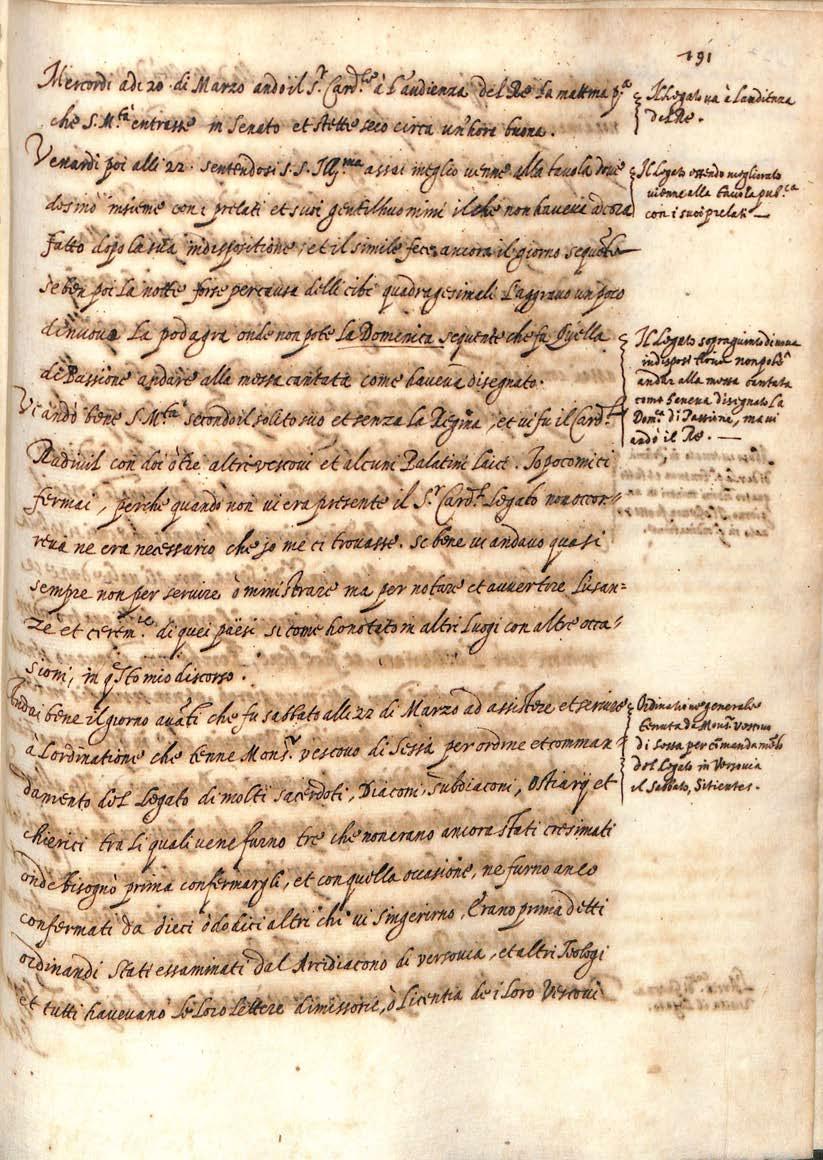 191
Mercordi adi 20 di Marzo andò il S.r Card.le à l'audienza del Re la mattina p.a
che S. M.tà entrasse in Senato et stette seco circa un'hora buona.
Venardi poi alli 22. sentendosi S. S. Ill.ma assai meglio venne alla tavola dove
desinò insieme con i prelati et suoi gentilhuomini il che non haveva ancora
fatto dopo la sua indispositione, et il simile fece ancora il giorno seque.te
se ben poi la notte forse per causa delli cibi quadragesimali l'aggravò un poco
di nuovo la podagra onde non potè la Domenica sequente che fu Quella
di Passione andare alla messa cantata come haveva disegnato.
Vi andò bene S. M.tà secondo il solito suo et senza la Regina, et vi fu il Card.l
Radivil con doi ò tre altri vescovi et alcuni Palatini laici. Io poco mi ci
fermai, perche quando non vi era presente il S.r Card.l Legato non occor=
reva ne era necessario che io me ci trovasse. se bene vi andavo quasi
sempre non per servire ò ministrare ma per notare et avvertire l'usan=
ze et cerem.e di quei paesi si come ho notato in altri luogi con altre occa=
sioni, in q.sto mio discorso.
Andai bene il giorno avāti che fu sabbato alli 22 di Marzo ad assistere et servire
à l'ordinatione che tenne Mons.r vescovo di Sessa per ordine et comman
damento del Legato di molti sacerdoti, Diaconi, subdiaconi, Ostiarij et
chierici tra li quali vene furno tre che non erano ancora stati cresimati
onde bisognò prima confermargli, et con quella occasione, ne furno anco
confermati da dieci ò dodici altri chi vi s'ingerirno, Erano prima detti
ordinandi stati essaminati dal Arcidiacono di versovia, et altri Teologi
et tutti havevano le loro lettere dimissorie, ò licentia de i loro Vescovi
Il Legato va à l'audienza
del Re.
Il Legato essendo megliorato
vienne alla tavola pub.ca
con i suoi prelati
Il Legato sopraginto di nova
indispositione non potè
andar alla messa cantata
come haveva disegnato la
Dom.a di Passione, ma vi
andò il Re.
Ordinatione generale
tenuta da Mons.r Vescovo
di Sessa per cōmandam.to
del Legato in Versovia
il Sabbato, Sitientes.